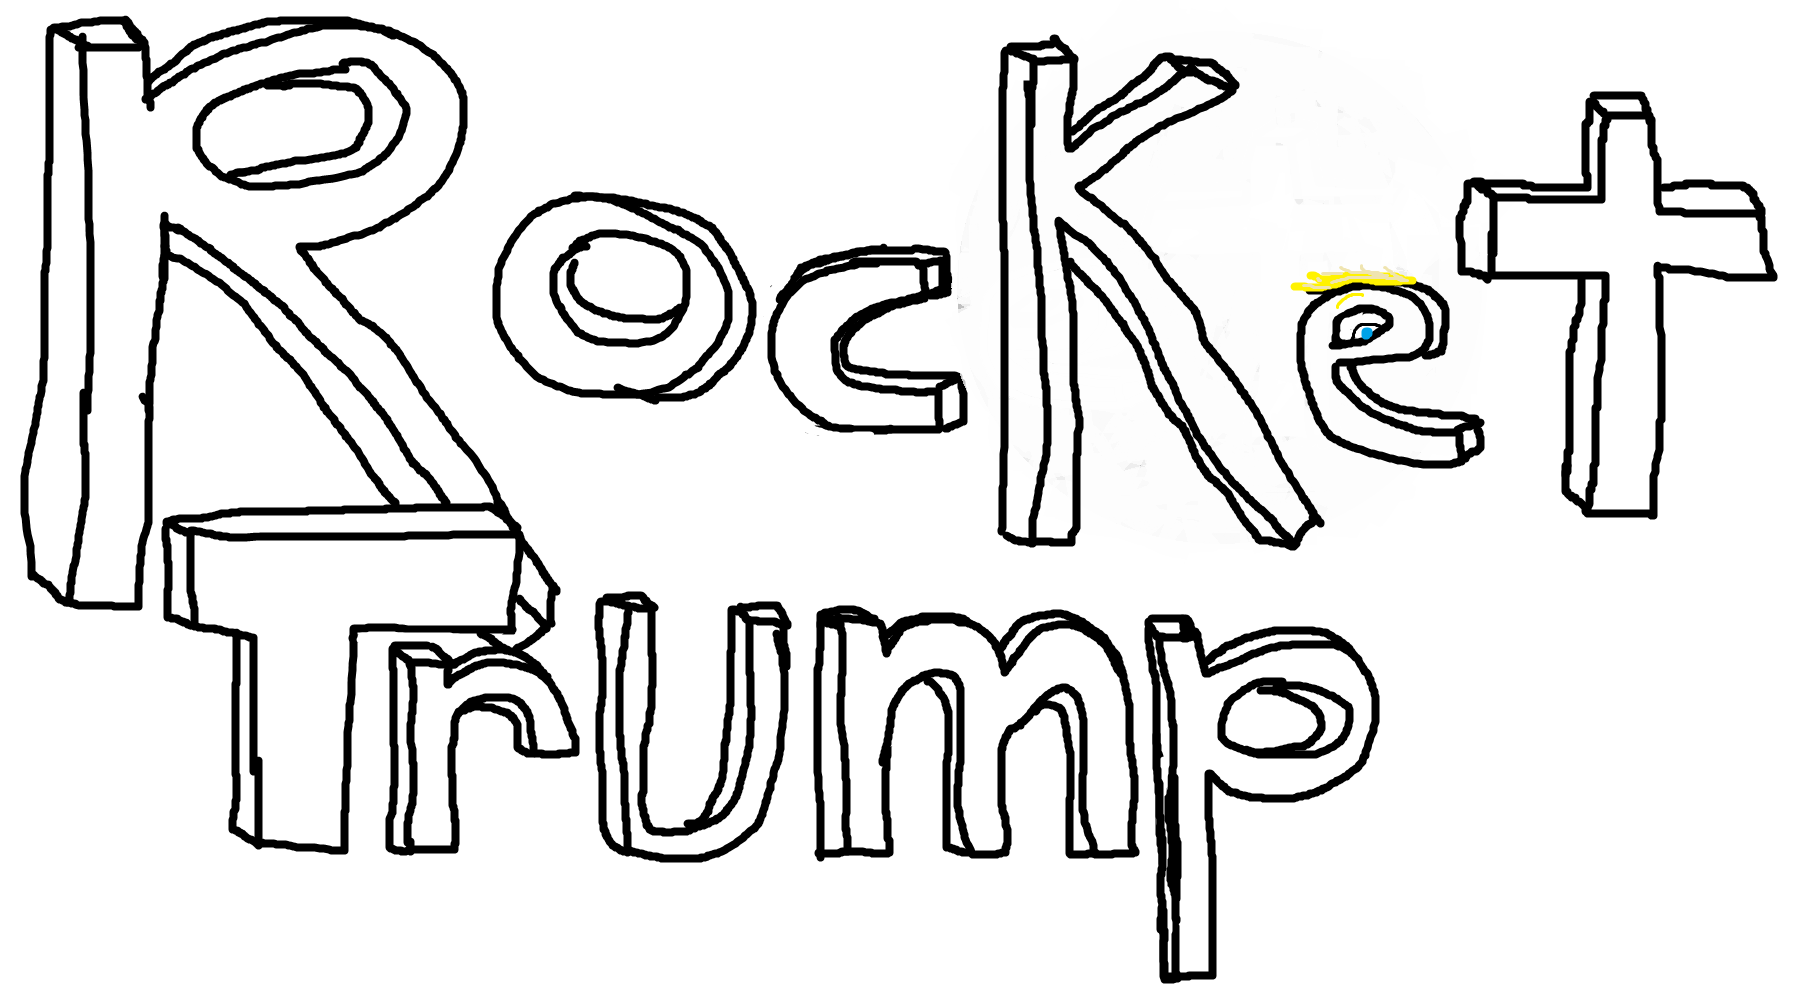 RocKet
Trump